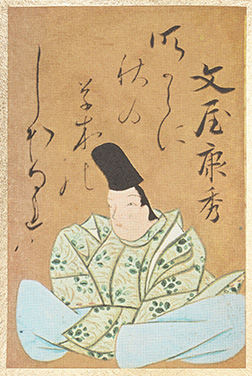 文屋康秀
吹からに
秋の
草木の
しほるれは